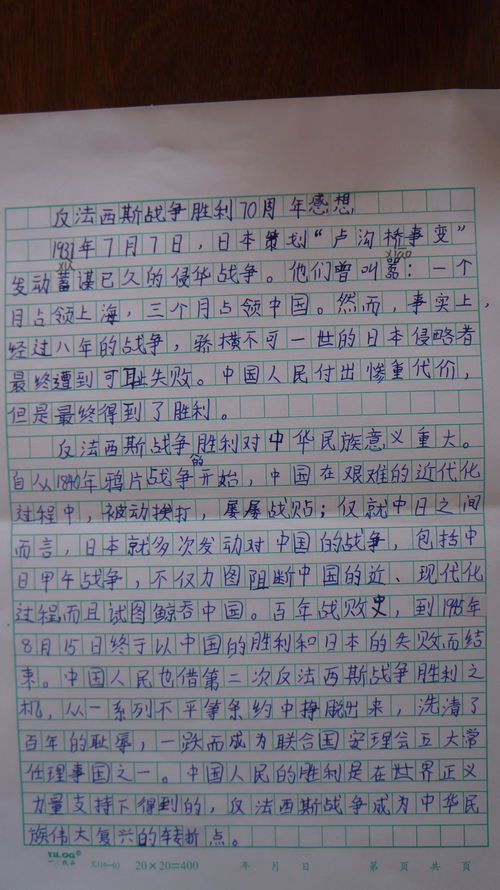 反法西斯战争胜利70周年感想
1937年7月7日，日本策划“卢沟桥事变”
xù
xiāo
发动蓄谋已久的侵华战争。他们曾叫嚣：一个
月占领上海，三个月占领中国。然而，事实上，
经过八年的战争，骄横不可一世的日本侵略者
最终遭到可耻失败。中国人民付出惨重代价，
但是最终得到了胜利。
反法西斯战争胜利对中华民族意义重大。
的
自从1840年鸦片战争开始，中国在艰难的近代化
过程中，被动挨打，屡屡战败；仅就中日之间
而言，日本就多次发动对中国的战争，包括中
日甲午战争，不仅力图阻断中国的近、现代化
过程而且试图鲸吞中国。百年战败史，到1945年
8月15日终于以中国的胜利和日本的失败而结
束。中国人民也借第二次反法西斯战争胜利之
机，从一系列不平等条约中挣脱出来，洗清了
百年的耻辱，一跃而成为联合国安理会五大常
任理事国之一。中国人民的胜利是在世界正义
力量支持下得到的，反法西斯战争成为中华民
族伟大复兴的转折点。
YILOG 20×20=400 年 月 日 第 页 共 页